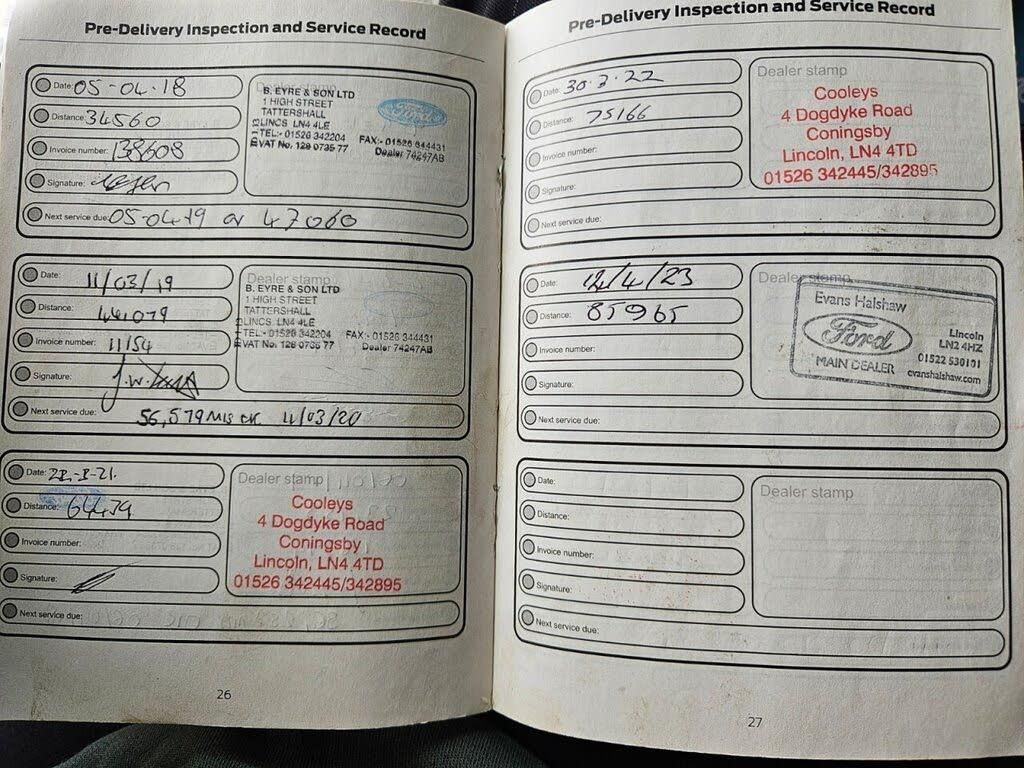 Pre-Delivery Inspection and Service Record
Date: 05-04-18
Distance: 34560
Invoice number: 138608
Signature:
Next service due: 05-04-19 or 47060
B. EYRE & SON LTD
1 HIGH STREET
TATTERSHALL
LINCS LN4 4LE
TEL:- 01526 342204 FAX:- 01526 344431
VAT No. 128 0735 77 Dealer 74247AB
Ford
Date: 11/03/19
Distance: 44079
Invoice number: 11154
Signature:
Next service due: 56,579 MLS OR 11/03/20
Dealer stamp
B. EYRE & SON LTD
1 HIGH STREET
TATTERSHALL
LINCS LN4 4LE
TEL:- 01526 342204 FAX:- 01526 344431
VAT No. 128 0735 77 Dealer 74247AB
Date:
Distance:
Invoice number:
Signature:
Next service due:
Dealer stamp
Cooleys
4 Dogdyke Road
Coningsby
Lincoln, LN4 4TD
01526 342445/342895
26
Pre-Delivery Inspection and Service Record
Date: 30.3.22
Distance: 75166
Invoice number:
Signature:
Next service due:
Dealer stamp
Cooleys
4 Dogdyke Road
Coningsby
Lincoln, LN4 4TD
01526 342445/342895
Date: 12/4/23
Distance: 85965
Invoice number:
Signature:
Next service due:
Dealer stamp
Evans Halshaw
Ford
MAIN DEALER
Lincoln
LN2 4HZ
01522 530101
evanshalshaw.com
Date:
Distance:
Invoice number:
Signature:
Next service due:
Dealer stamp
27